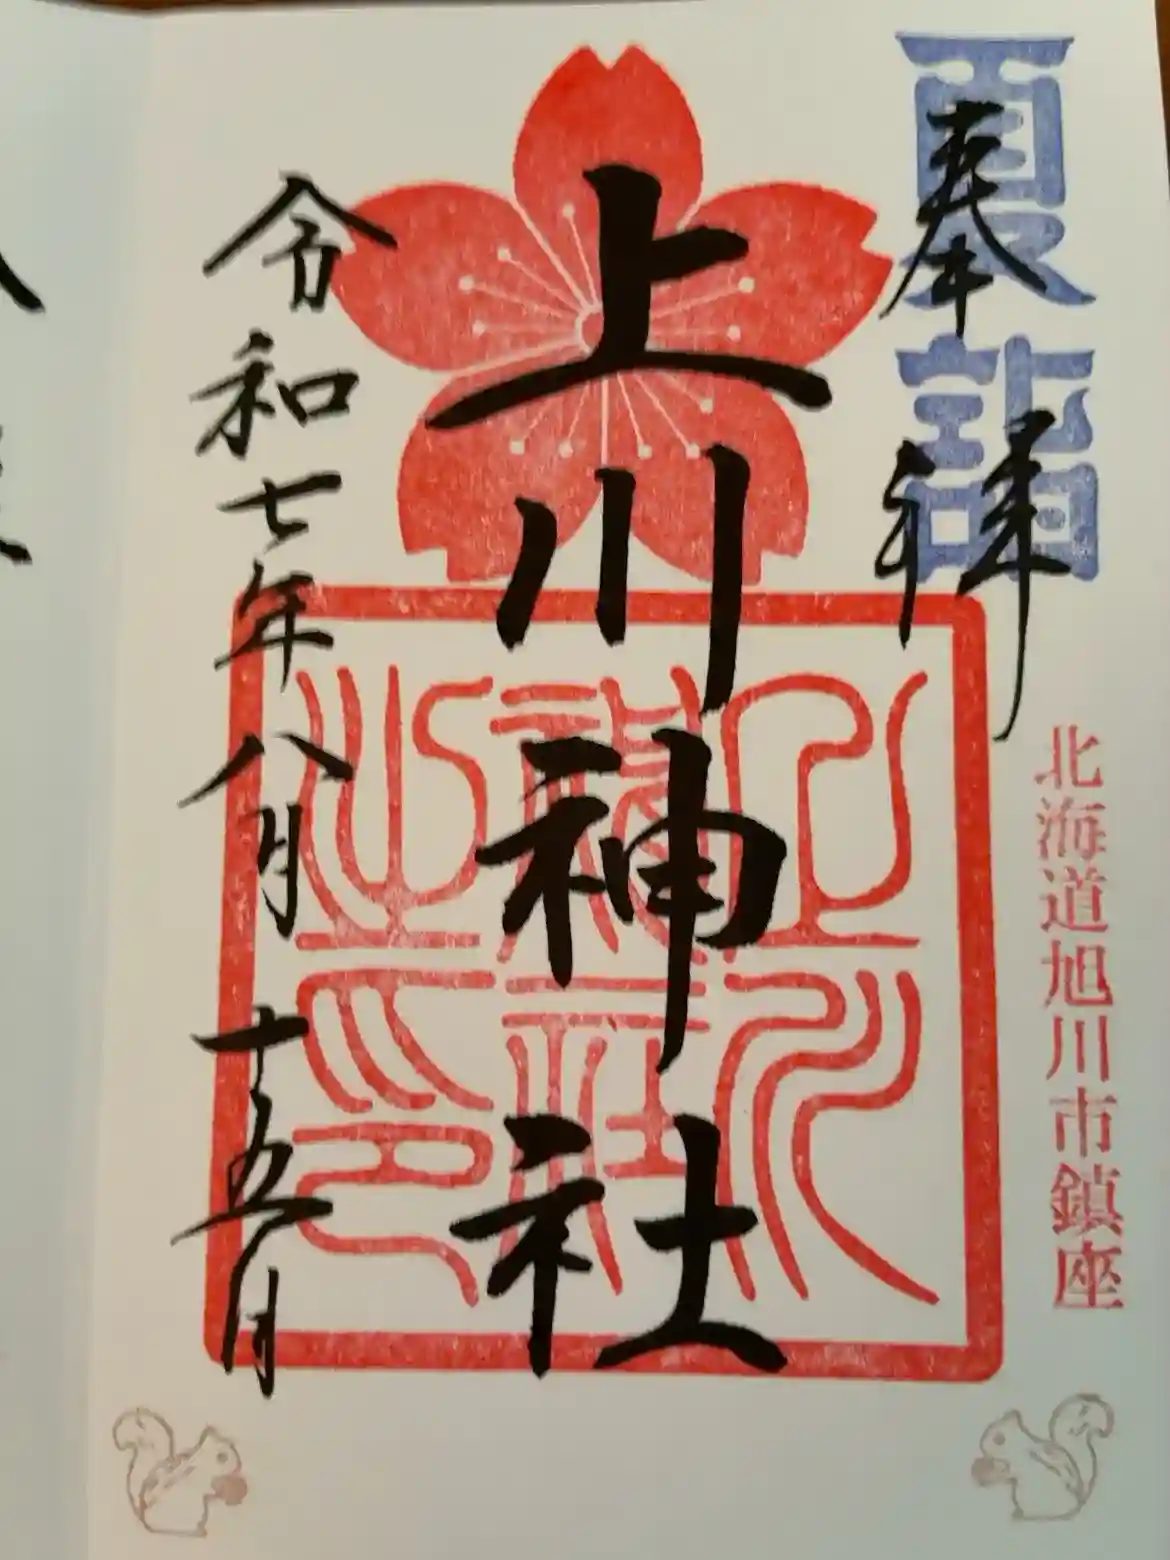 夏詣
奉拝
北海道旭川市鎮座
上川神社
上川
神社
之印
令和七年八月十五日